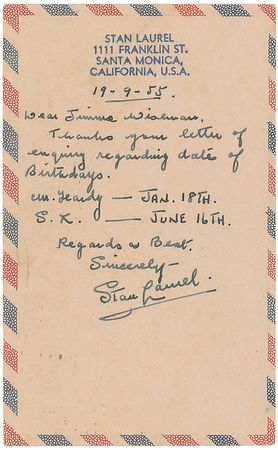 STAN LAUREL
1111 FRANKLIN ST.
SANTA MONICA,
CALIFORNIA, U.S.A.
19-9-55.
Dear Jimmie Wiseman,
Thanks your letter of
enquiry regarding date of
Birthdays.
Mr. Hardy — JAN. 18TH.
S. L. — JUNE 16TH.
Regards & Best.
Sincerely—
Stan Laurel